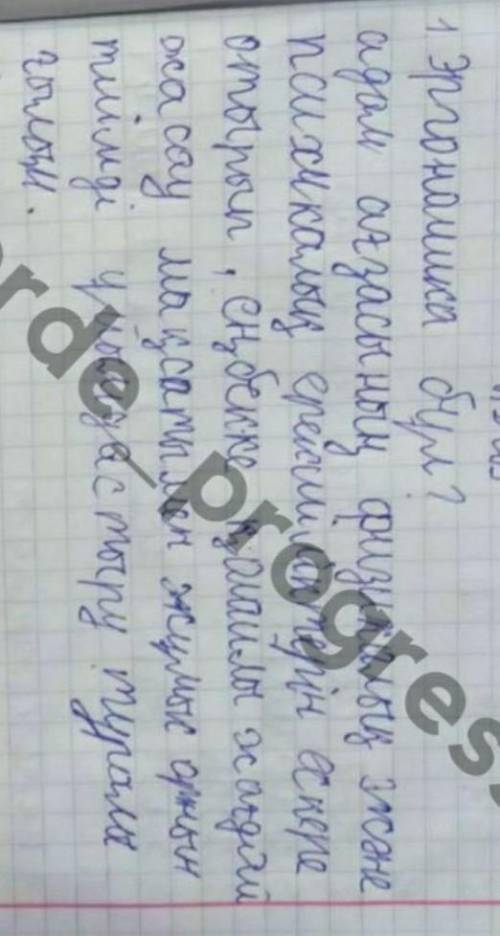 1. Эргономика бұл?
адам ағзасының физикалық және
психикалық ерекшіліктерін ескере
отырып, еңбекке қолайлы жағдай
жасау мақсатымен жұмыс орнын
тиімді ұйымдастыру туралы
ғылым.